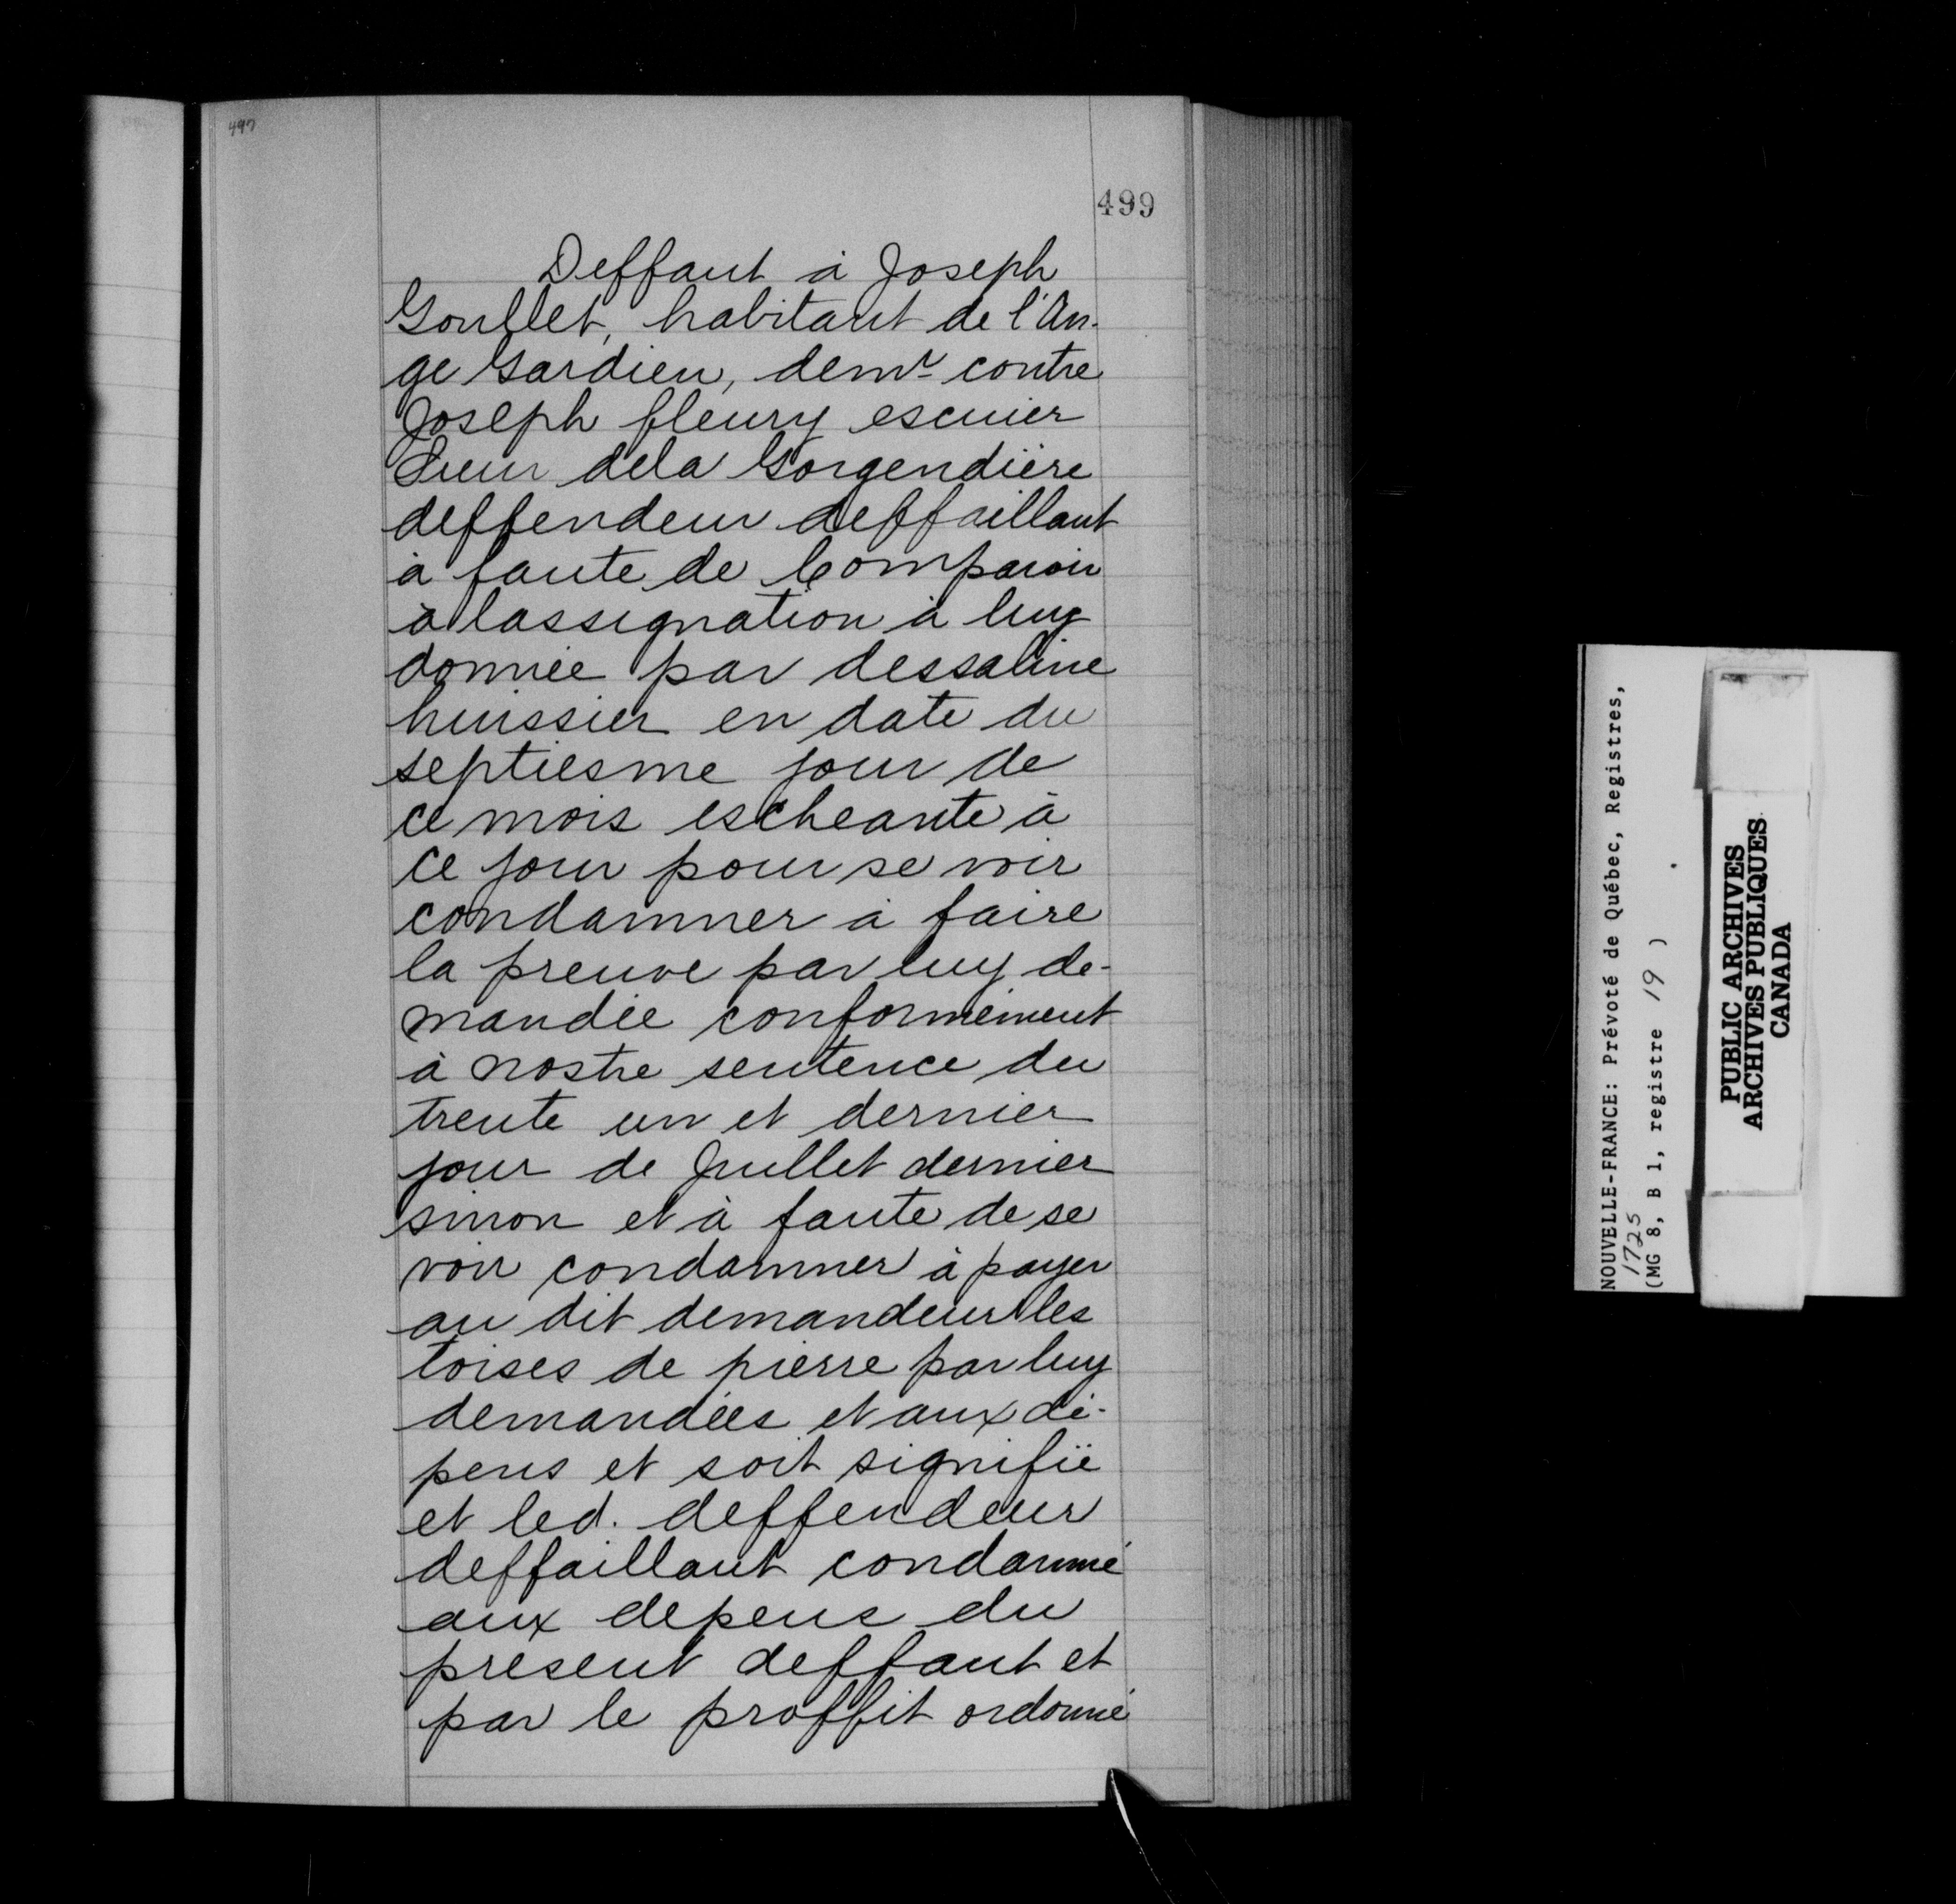 497
499
Deffaut à Joseph
Goullet, habitant de l'An-
ge Gardien, demr contre
Joseph fleury escuier
Sieur dela Gorgendière
deffendeur deffaillant
à faute de Comparoir
à lassignation à luy
donnée par dessaline
huissier en date du
septiesme jour de
ce mois escheante à
ce jour pour se voir
condamner à faire
la preuve par luy de-
mandée conformément
à nostre sentence du
trente un et dernier
jour de Juillet dernier
sinon et à faute de se
voir condamner à payer
au dit demandeur les
toises de pierre par luy
demandées et aux dé-
pens et soit signifié
et led. deffendeur
deffaillant condamné
aux depens du
present deffaut et
par le proffit ordonné
NOUVELLE-FRANCE: Prévoté de Québec, Registres,
1725
(MG 8, B 1, registre 19 )
PUBLIC ARCHIVES
ARCHIVES PUBLIQUES
CANADA